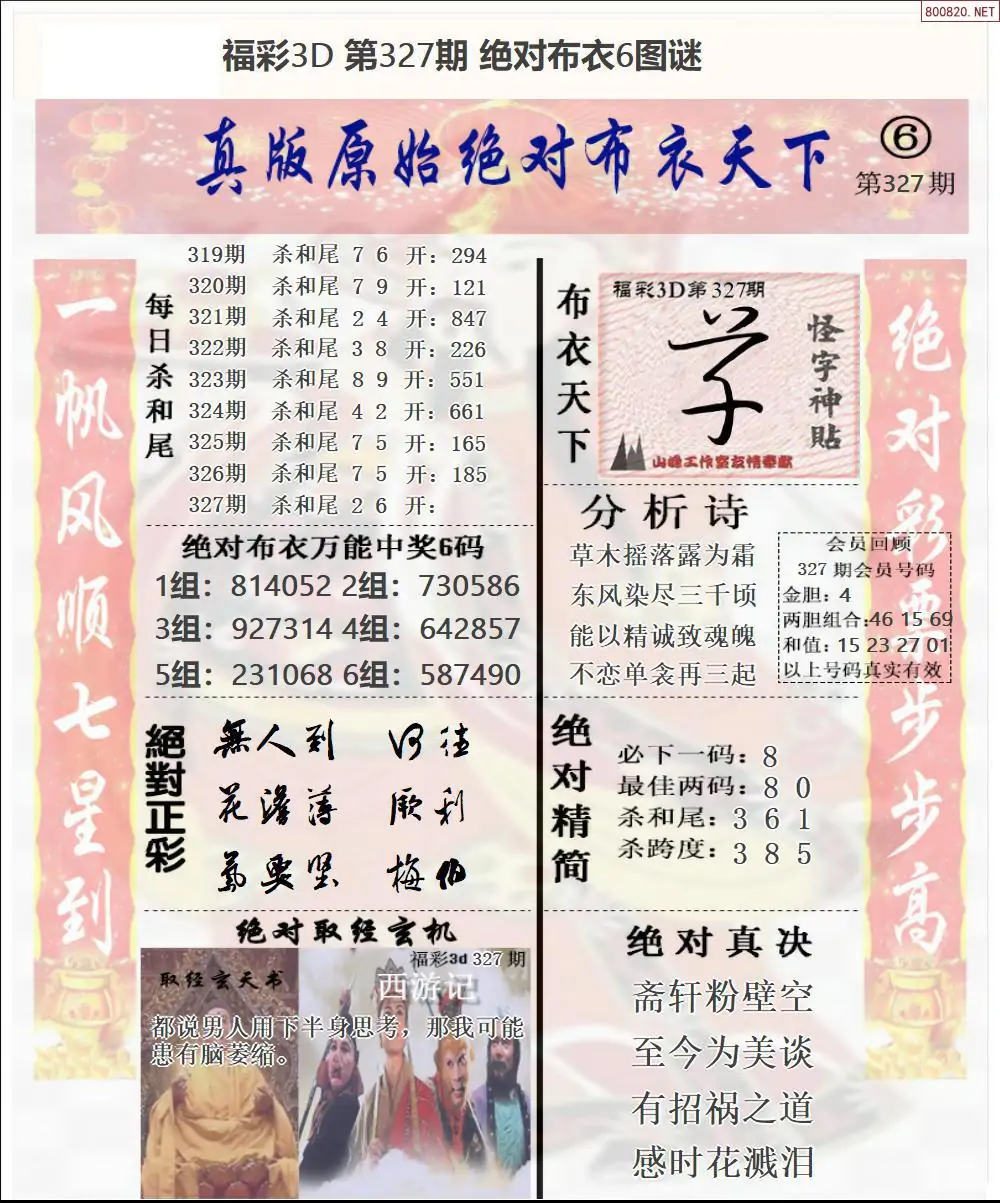 800820.NET
福彩3D 第327期 绝对布衣6图谜
真版原始绝对布衣天下
⑥
第327期
一帆风顺七星到
每日杀和尾
319期 杀和尾 7 6 开：294
320期 杀和尾 7 9 开：121
321期 杀和尾 2 4 开：847
322期 杀和尾 3 8 开：226
323期 杀和尾 8 9 开：551
324期 杀和尾 4 2 开：661
325期 杀和尾 7 5 开：165
326期 杀和尾 7 5 开：185
327期 杀和尾 2 6 开：
绝对布衣万能中奖6码
1组：814052 2组：730586
3组：927314 4组：642857
5组：231068 6组：587490
絕對正彩
無人到
花澹薄
梅伯
绝对取经玄机
福彩3d 327期
取经玄天书
西游记
都说男人用下半身思考，那我可能
患有脑萎缩。
布衣天下
福彩3D第327期
怪字神貼
山峰工作室友情奉献
分析诗
草木摇落露为霜
东风染尽三千顷
能以精诚致魂魄
不恋单衾再三起
会员回顾
327期会员号码
金胆：4
两胆组合:46 15 69
和值：15 23 27 01
以上号码真实有效
绝对精简
必下一码：8
最佳两码：8 0
杀和尾：3 6 1
杀跨度：3 8 5
绝对真决
斋轩粉壁空
至今为美谈
有招祸之道
感时花溅泪
绝对彩票步步高